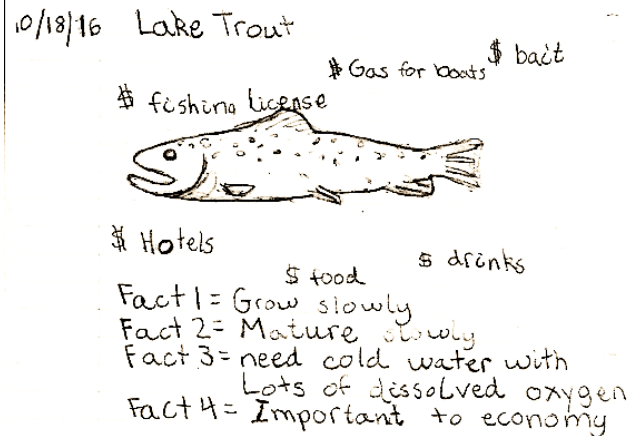 10/18/16 Lake Trout
$ Gas for boats $ bait
$ fishing License
$ Hotels
$ food $ drinks
Fact 1 = Grow slowly
Fact 2 = Mature slowly
Fact 3 = need cold water with
Lots of dissolved oxygen
Fact 4 = Important to economy